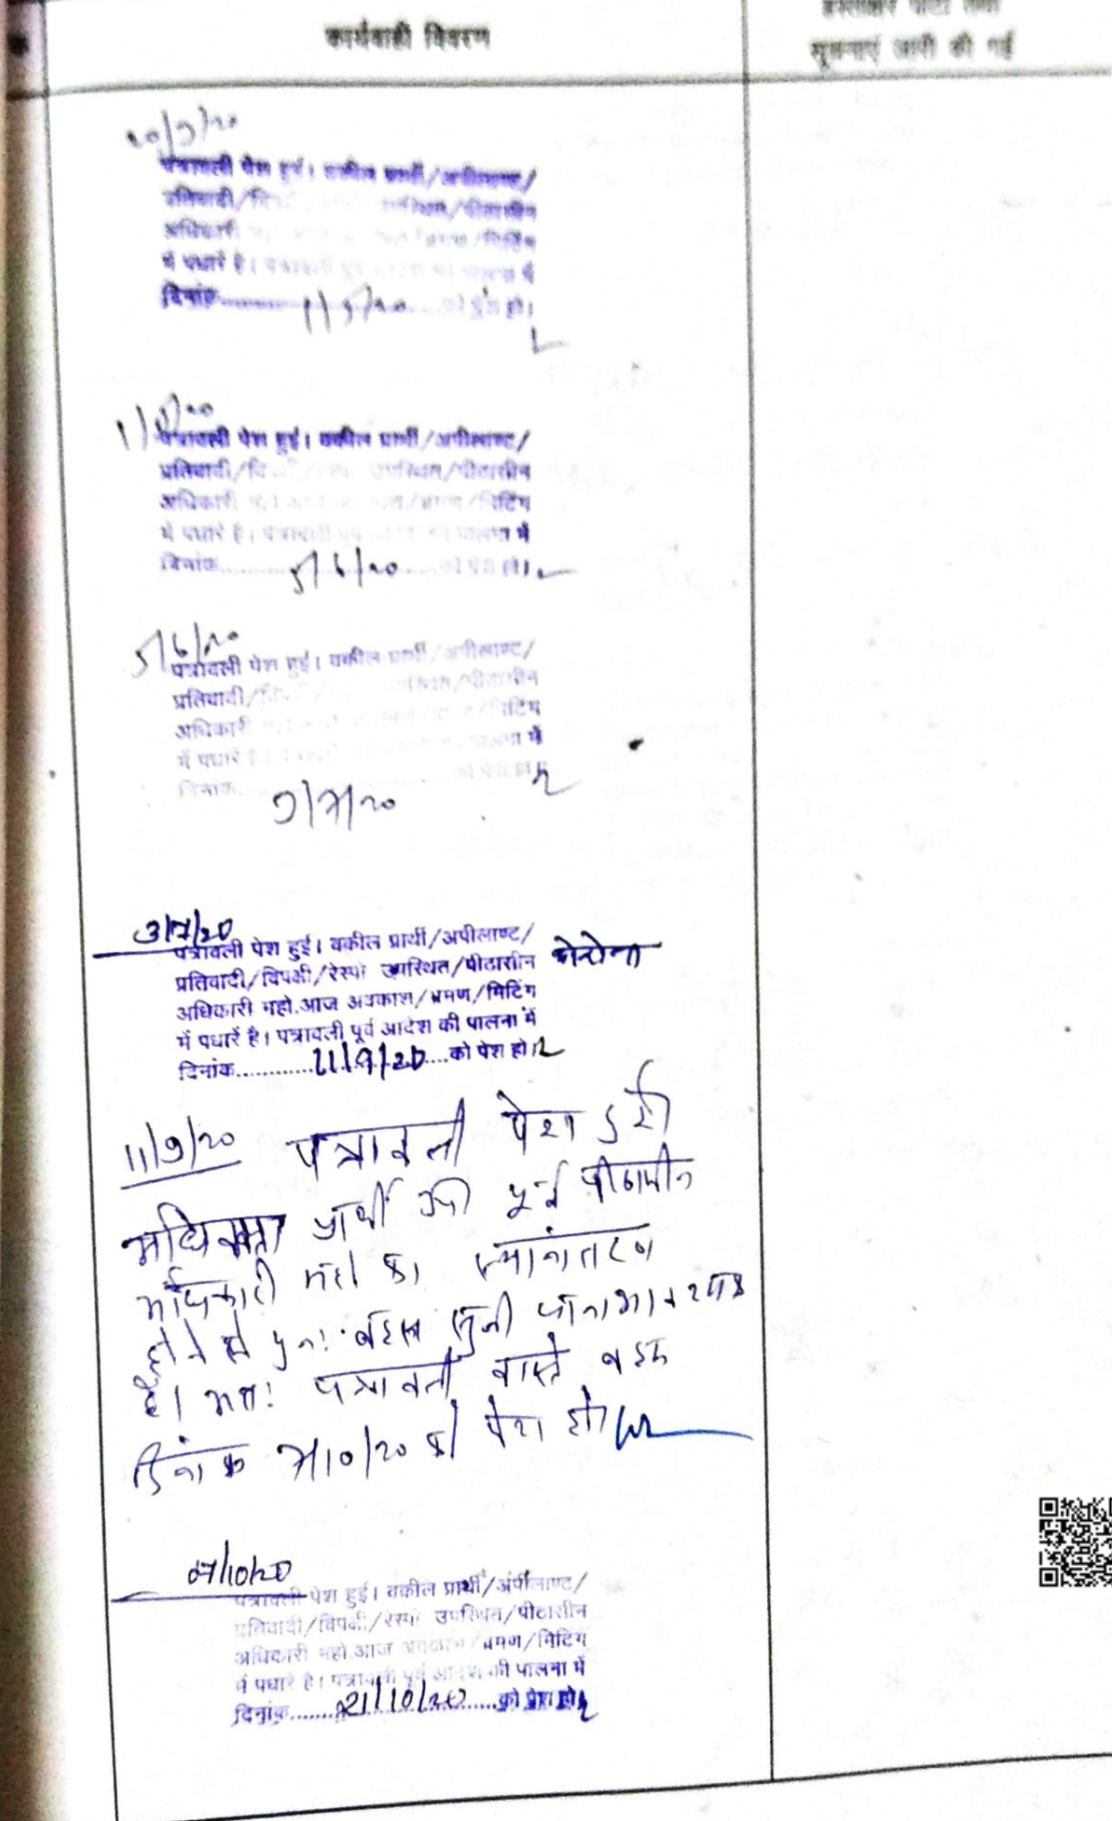 कार्यवाही विवरण
हस्ताक्षर पार्टी तथा
सूचनाएं जारी की गई
पत्रावली पेश हुई। वकील प्रार्थी/अपीलाण्ट/
प्रतिवादी/ उपस्थित/पीठासीन
अधिकारी /मिटिंग
में पधारें है। पत्रावली पूर्व पालना में
दिनांक 1/5/20 को पेश हो।
1/5/20
पत्रावली पेश हुई। वकील प्रार्थी/अपीलाण्ट/
प्रतिवादी/ उपस्थित/पीठासीन
अधिकारी /भ्रमण/मिटिंग
में पधारें है। पत्रावली पूर्व पालना में
दिनांक 5/6/20 को पेश हो।
5/6/20
पत्रावली पेश हुई। वकील प्रार्थी/अपीलाण्ट/
प्रतिवादी/ उपस्थित/पीठासीन
अधिकारी /मिटिंग
में पधारें पालना में
दिनांक को पेश हो
3/7/20
3/7/20
पत्रावली पेश हुई। वकील प्रार्थी/अपीलाण्ट/
प्रतिवादी/विपक्षी/रेस्पो उपस्थित/पीठासीन कोरोना
अधिकारी महो.आज अवकाश/भ्रमण/मिटिंग
में पधारें है। पत्रावली पूर्व आदेश की पालना में
दिनांक............11/9/20....को पेश हो।
11/9/20 पत्रावली पेश हुई
अधिवक्ता प्रार्थी उप० पूर्व पीठासीन
अधिकारी महो का स्थानांतरण
होने से पुनः बहस सुनी जाना आवश्यक
है। अतः पत्रावली वास्ते बहस
दिनांक 7/10/20 को पेश हो।
07/10/20
पत्रावली पेश हुई। वकील प्रार्थी/अपीलाण्ट/
प्रतिवादी/विपक्षी/रेस्पो उपस्थित/पीठासीन
अधिकारी महो.आज अवकाश/भ्रमण/मिटिंग
में पधारे है। पत्रावली पूर्व आदेश की पालना में
दिनांक.......21/10/20.......को पेश हो।